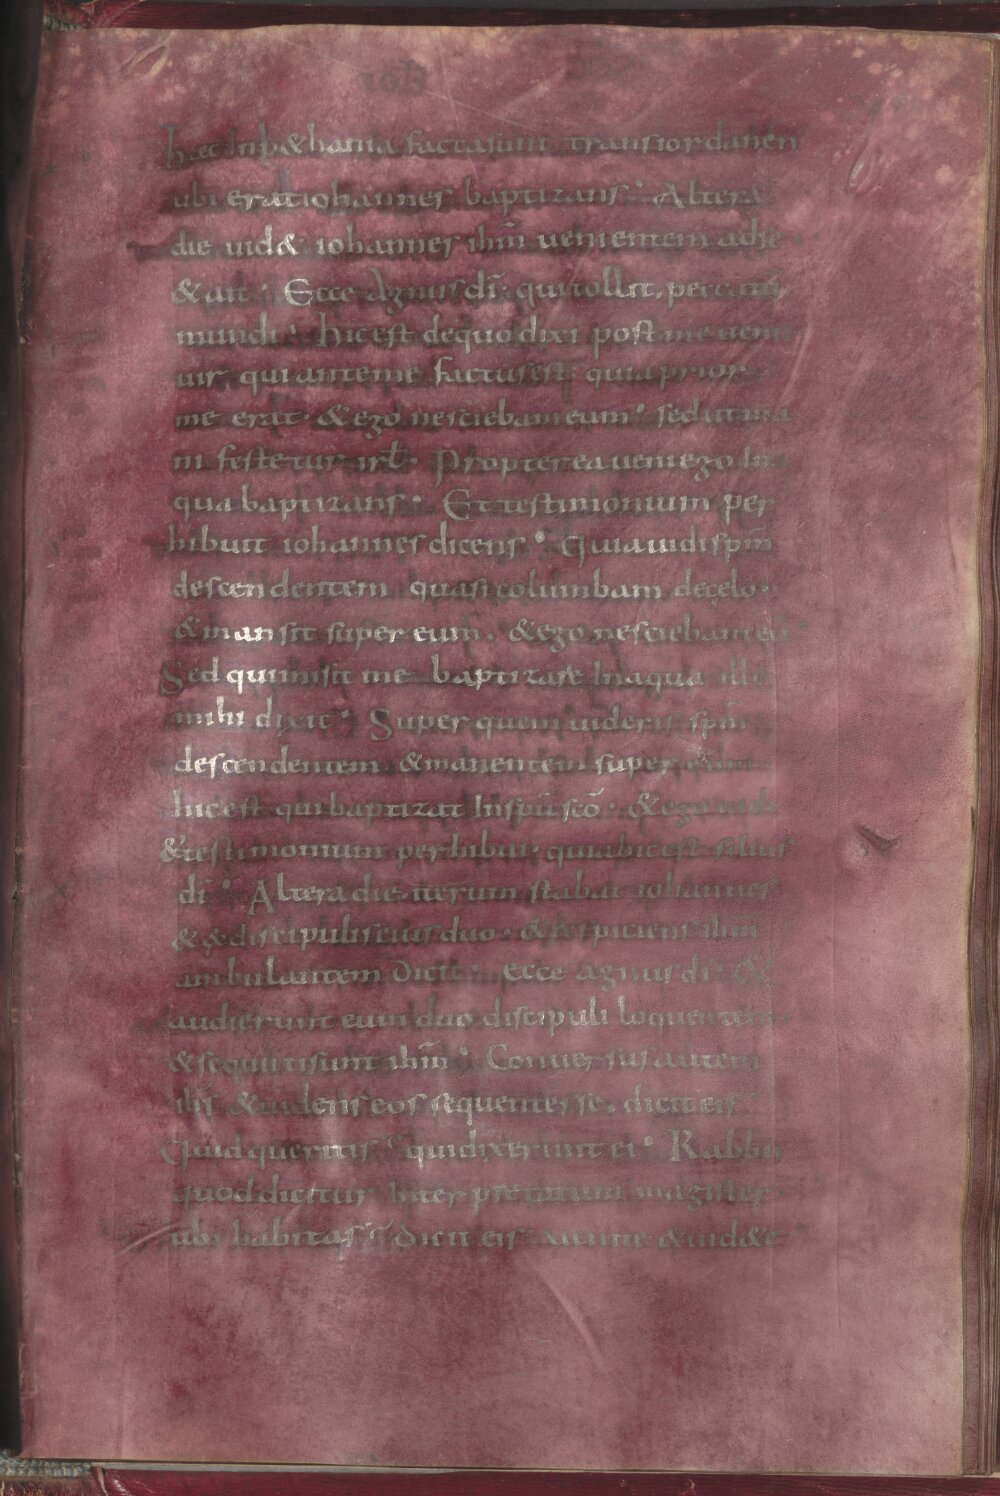 haec In b&hania facta sunt trans iordanen
ubi erat iohannes baptizans · Altera
die uid& iohannes ihm̄ uenientem adse ·
& ait · Ecce Agnus dī · qui tollit peccatū
mundi · hic est de quo dixi post me uenit
uir qui ante me factus est quia prior
me erat · & ego nesciebam eum · sed ut ma
ni festetur isrł · Propterea ueni ego In
qua baptizans · Et testimonium per
hibuit iohannes dicens · Quia uidi spm̄
descendentem quasi columbam de cęlo ·
& mansit super eum · & ego nesciebam eū
Sed qui misit me baptizare In aqua ille
mihi dixit · Super quem uideris spm̄
descendentem & manentem super eum
hic est qui baptizat In spū scō · & ego uidi
& testimonium perhibui · quia hic est filius
dī · Altera die iterum stabat iohannes
& ex discipulis eius duo · & respiciens ihm̄
ambulantem Dicit · ecce agnus dī · &
audierunt eum duo discipuli loquentem
& sequuti sunt ihm̄ · Conuersus autem
ihs̄ & uidens eos sequentes se · dicit eis
Quid queritis qui dixerunt ei · Rabbi
quod dicitur Interpretatum magister
ubi habitas Dicit eis uenite & uid&e